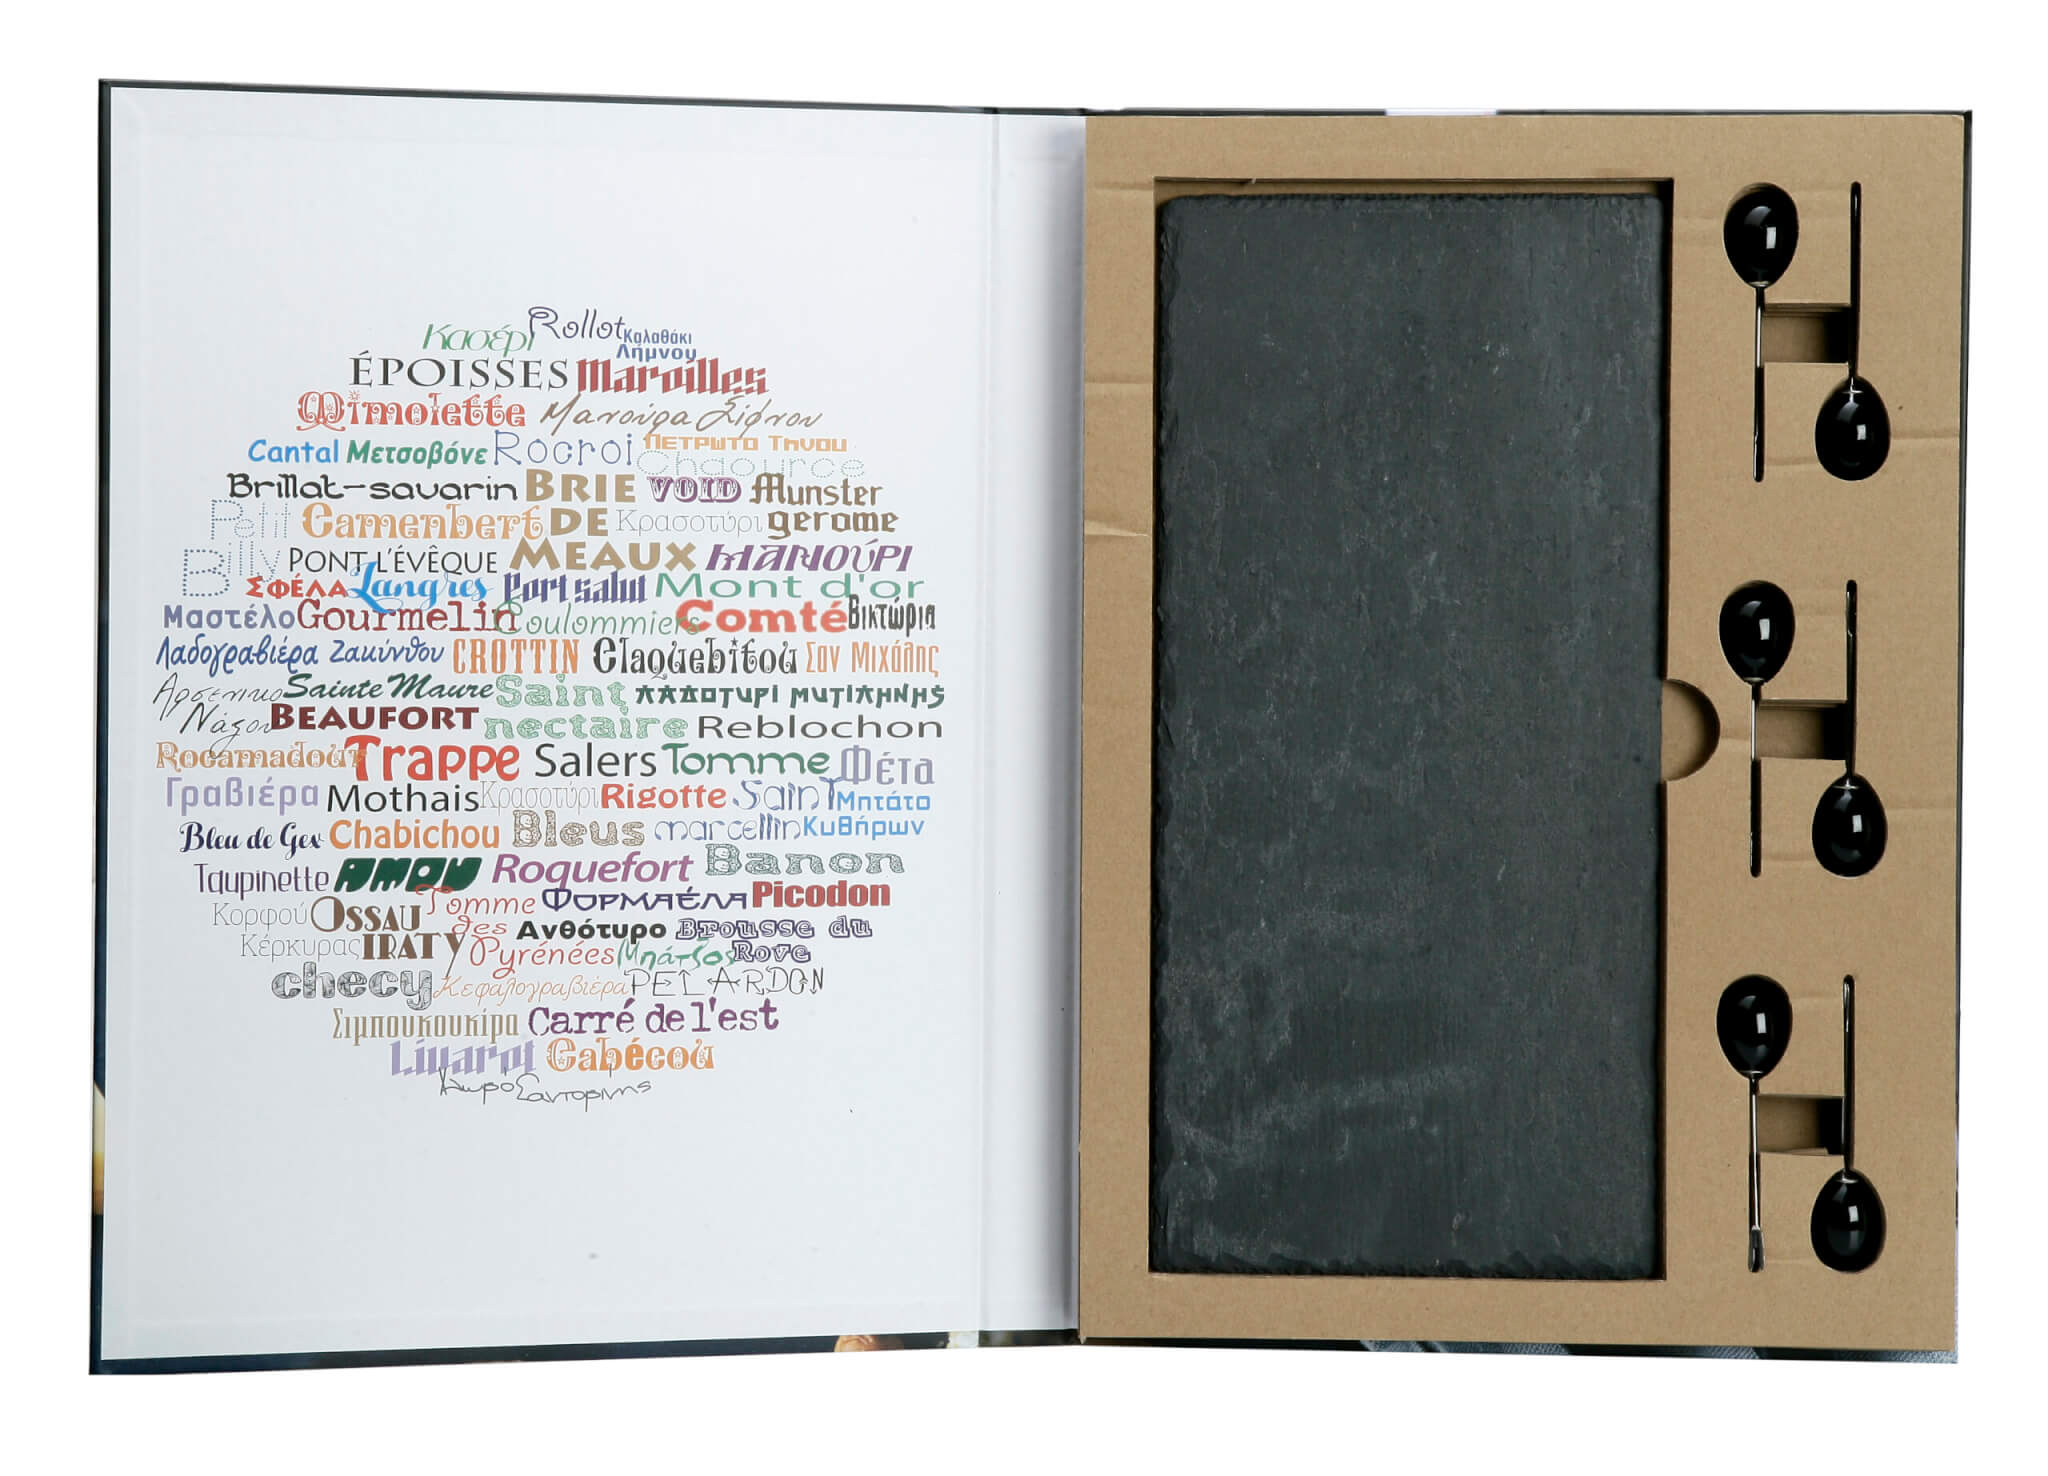 Κασέρι Rollot Καλαθάκι
Λήμνου
ÉPOISSES Maroilles
Mimolette Μανούρα Σίφνου
Cantal Μετσοβόνε Rocroi Πετρωτο Τηνου
Chaource
Brillat-savarin BRIE VOID Munster
Petit Camembert DE Κρασοτύρι gerome
Billy PONT L'ÉVÊQUE MEAUX ΜΑΝΟύΡΙ
ΣΦέΛΑ Langres Port salut Mont d'or
Μαστέλο Gourmelin Coulommiers Comté Βικτώρια
Λαδογραβιέρα Ζακύνθου CROTTIN Claquebitou Σαν Μιχάλης
Αρσενικο Sainte Maure Saint ΛΑΔΟΤΥΡΙ ΜΥΤΙΛΗΝΗΣ
Νάξου BEAUFORT nectaire Reblochon
Rocamadour Trappe Salers Tomme Φέτα
Γραβιέρα Mothais Κρασοτύρι Rigotte Saint Μπτάτο
Bleu de Gex Chabichou Bleus marcellin Κυθήρων
Taupinette AMOU Roquefort Banon
Κορφού OSSAU Tomme ΦΟΡΜΑέΛΑ Picodon
Κέρκυρας IRATY des Ανθότυρο Brousse du
Pyrénées Μπάτζος Rove
checy Κεφαλογραβιέρα PELARDON
Σιμπουκουκίρα Carré de l'est
Livarot Cabécou
Χλωρό Σαντορίνης